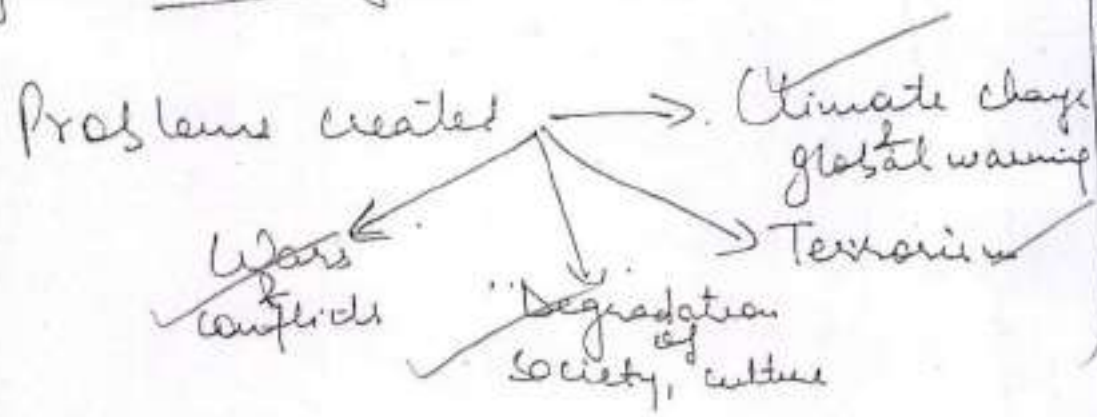 Problems created
Climate change
&
global warming
Terrorism
Wars
&
conflicts
Degradation
of
society, culture